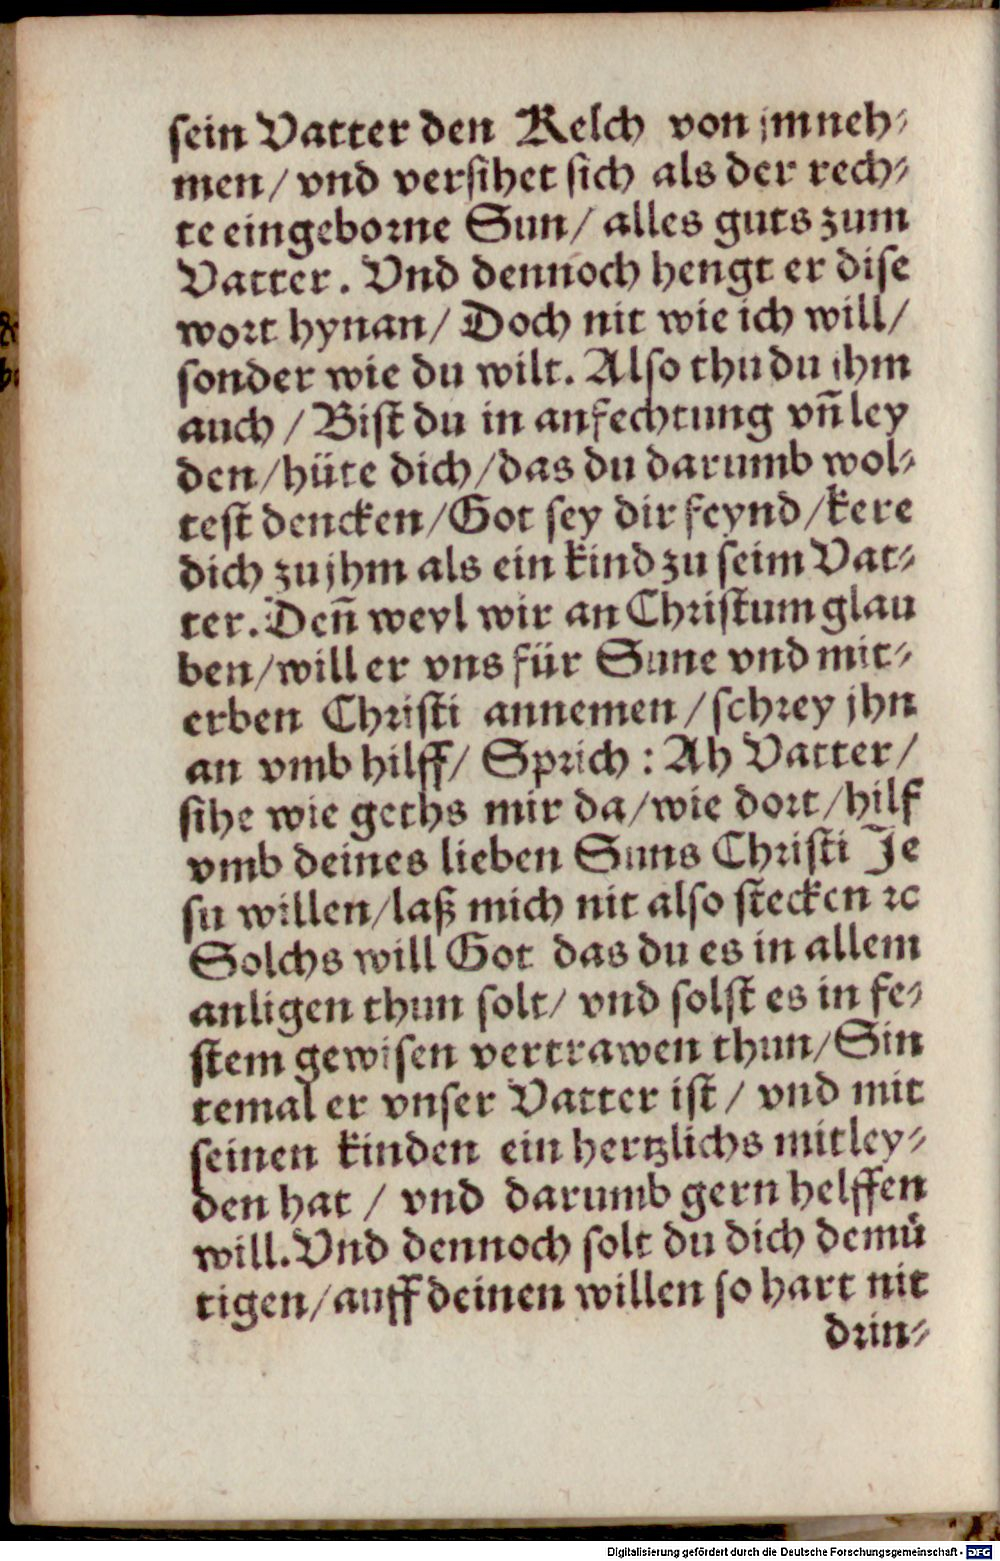 sein Vatter den Kelch von jm neh⸗
men/ vnd versihet sich als der rech⸗
te eingeborne Sun/ alles guts zum
Vatter. Vnd dennoch hengt er dise
wort hynan/ Doch nit wie ich will/
sonder wie du wilt. Also thu du jhm
auch/ Bist du in anfechtung vñ ley
den/hüte dich/das du darumb wol⸗
test dencken/Got sey dir feynd/kere
dich zu jhm als ein kind zu seim Vat⸗
ter. Deñ weyl wir an Christum glau
ben/will er vns für Sune vnd mit⸗
erben Christi annemen/schrey jhn
an vmb hilff/ Sprich: Ah Vatter/
sihe wie geths mir da/wie dort/hilf
vmb deines lieben Suns Christi Je
su willen/laß mich nit also stecken ꝛc
Solchs will Got das du es in allem
anligen thun solt/ vnd solst es in fe⸗
stem gewisen vertrawen thun/Sin
temal er vnser Vatter ist/ vnd mit
seinen kinden ein hertzlichs mitley⸗
den hat/ vnd darumb gern helffen
will. Vnd dennoch solt du dich demü
tigen/auff deinen willen so hart nit
drin⸗
Digitalisierung gefördert durch die Deutsche Forschungsgemeinschaft - DFG